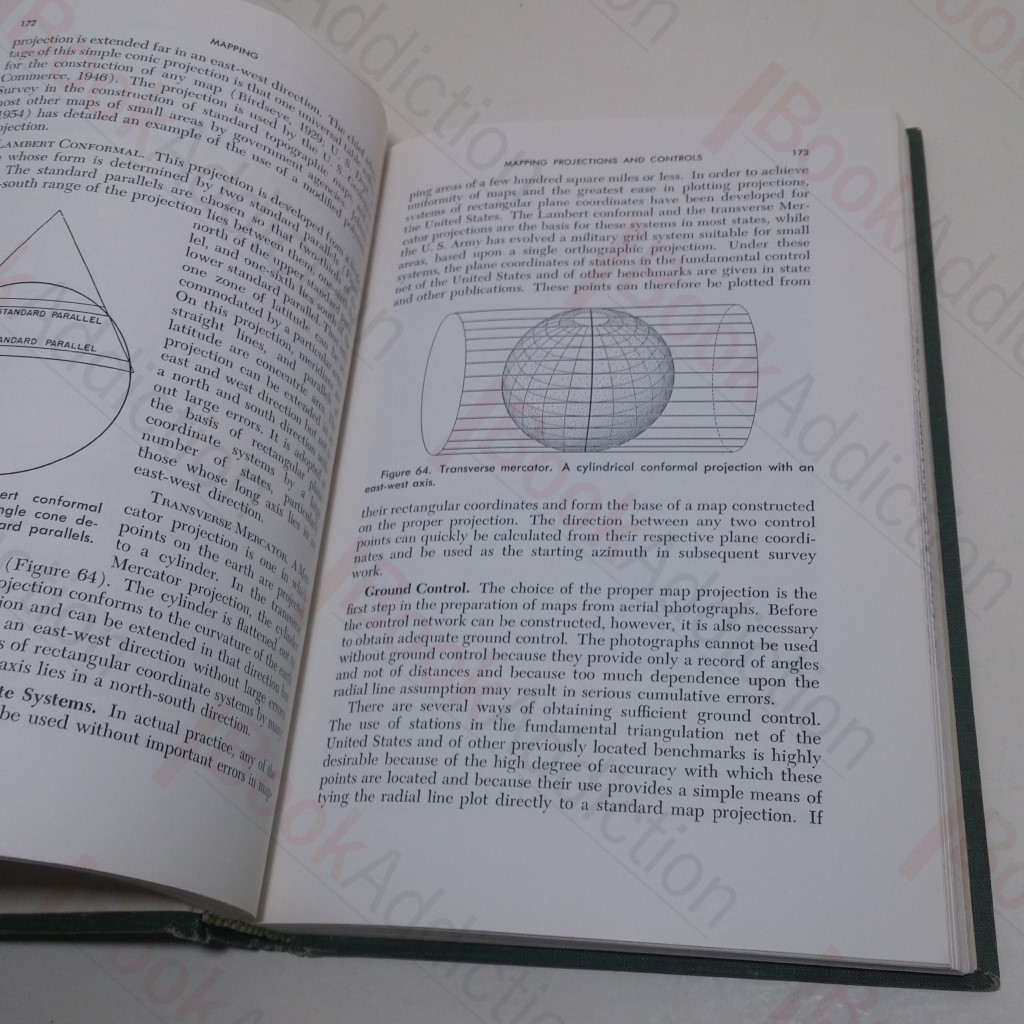 172
MAPPING
projection is extended far in an east-west direction. The chief
tage of this simple conic projection is that one universal table
for the construction of any map (Birdseye, 1929; U. S. Dept.
Commerce, 1946). The projection is used by the U. S.
Survey in the construction of standard topographic maps, and
most other maps of small areas by government agencies.
1954) has detailed an example of the use of a modified
jection.
LAMBERT CONFORMAL. This projection is developed from
whose form is determined by two standard parallels
The standard parallels are chosen so that two-thirds
-south range of the projection lies between them, one-sixth
north of the upper standard
lel, and one-sixth south
lower standard parallel. Thus
one zone of latitude can be
commodated by a particular
On this projection, meridians
straight lines, and parallels
latitude are concentric arcs.
projection can be extended
east and west direction but not
a north and south direction
out large errors. It is adapted
the basis of rectangular plane
coordinate systems by a
number of states, particularly
those whose long axis lies in an
east-west direction.
STANDARD PARALLEL
STANDARD PARALLEL
ert conformal
ngle cone de-
ard parallels.
TRANSVERSE MERCATOR. A Mer-
cator projection is one in which
points on the earth are projected
to a cylinder. In the transverse
Mercator projection, the cylinder
(Figure 64). The cylinder is flattened out
ojection conforms to the curvature of the earth
ion and can be extended in that direction but
an east-west direction without large errors
s of rectangular coordinate systems by many
axis lies in a north-south direction.
te Systems. In actual practice, any of the
be used without important errors in map-
MAPPING PROJECTIONS AND CONTROLS
173
ping areas of a few hundred square miles or less. In order to achieve
uniformity of maps and the greatest ease in plotting projections,
systems of rectangular plane coordinates have been developed for
the United States. The Lambert conformal and the transverse Mer-
cator projections are the basis for these systems in most states, while
the U. S. Army has evolved a military grid system suitable for small
areas, based upon a single orthographic projection. Under these
systems, the plane coordinates of stations in the fundamental control
net of the United States and of other benchmarks are given in state
and other publications. These points can therefore be plotted from
Figure 64. Transverse mercator. A cylindrical conformal projection with an
east-west axis.
their rectangular coordinates and form the base of a map constructed
on the proper projection. The direction between any two control
points can quickly be calculated from their respective plane coordi-
nates and be used as the starting azimuth in subsequent survey
work.
Ground Control. The choice of the proper map projection is the
first step in the preparation of maps from aerial photographs. Before
the control network can be constructed, however, it is also necessary
to obtain adequate ground control. The photographs cannot be used
without ground control because they provide only a record of angles
and not of distances and because too much dependence upon the
radial line assumption may result in serious cumulative errors.
There are several ways of obtaining sufficient ground control.
The use of stations in the fundamental triangulation net of the
United States and of other previously located benchmarks is highly
desirable because of the high degree of accuracy with which these
points are located and because their use provides a simple means of
tying the radial line plot directly to a standard map projection. If
BookAddiction